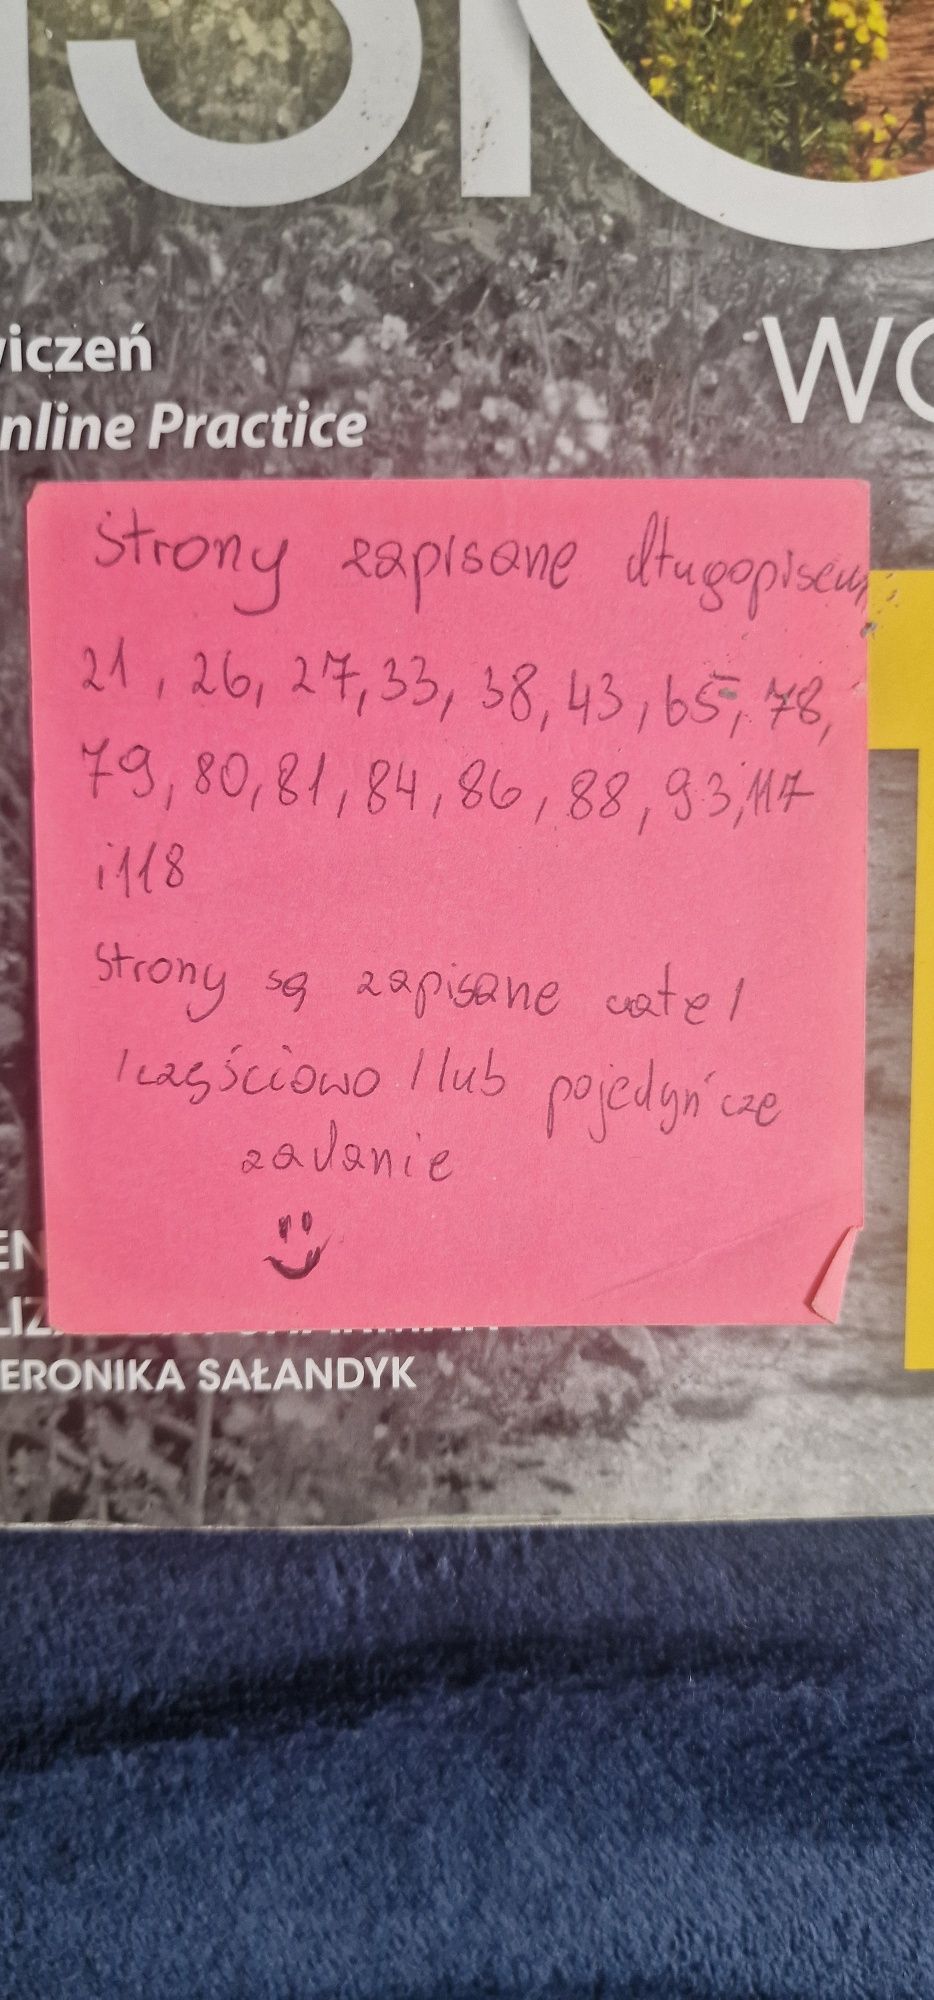 iczeń
WO
nline Practice
strony zapisane długopisem
21, 26, 27, 33, 38, 43, 65, 78,
79, 80, 81, 84, 86, 88, 93, 117
i 118
strony są zapisane całe /
/ częściowo / lub pojedyńcze
zadanie
EN
LIZ
ERONIKA SAŁANDYK
1